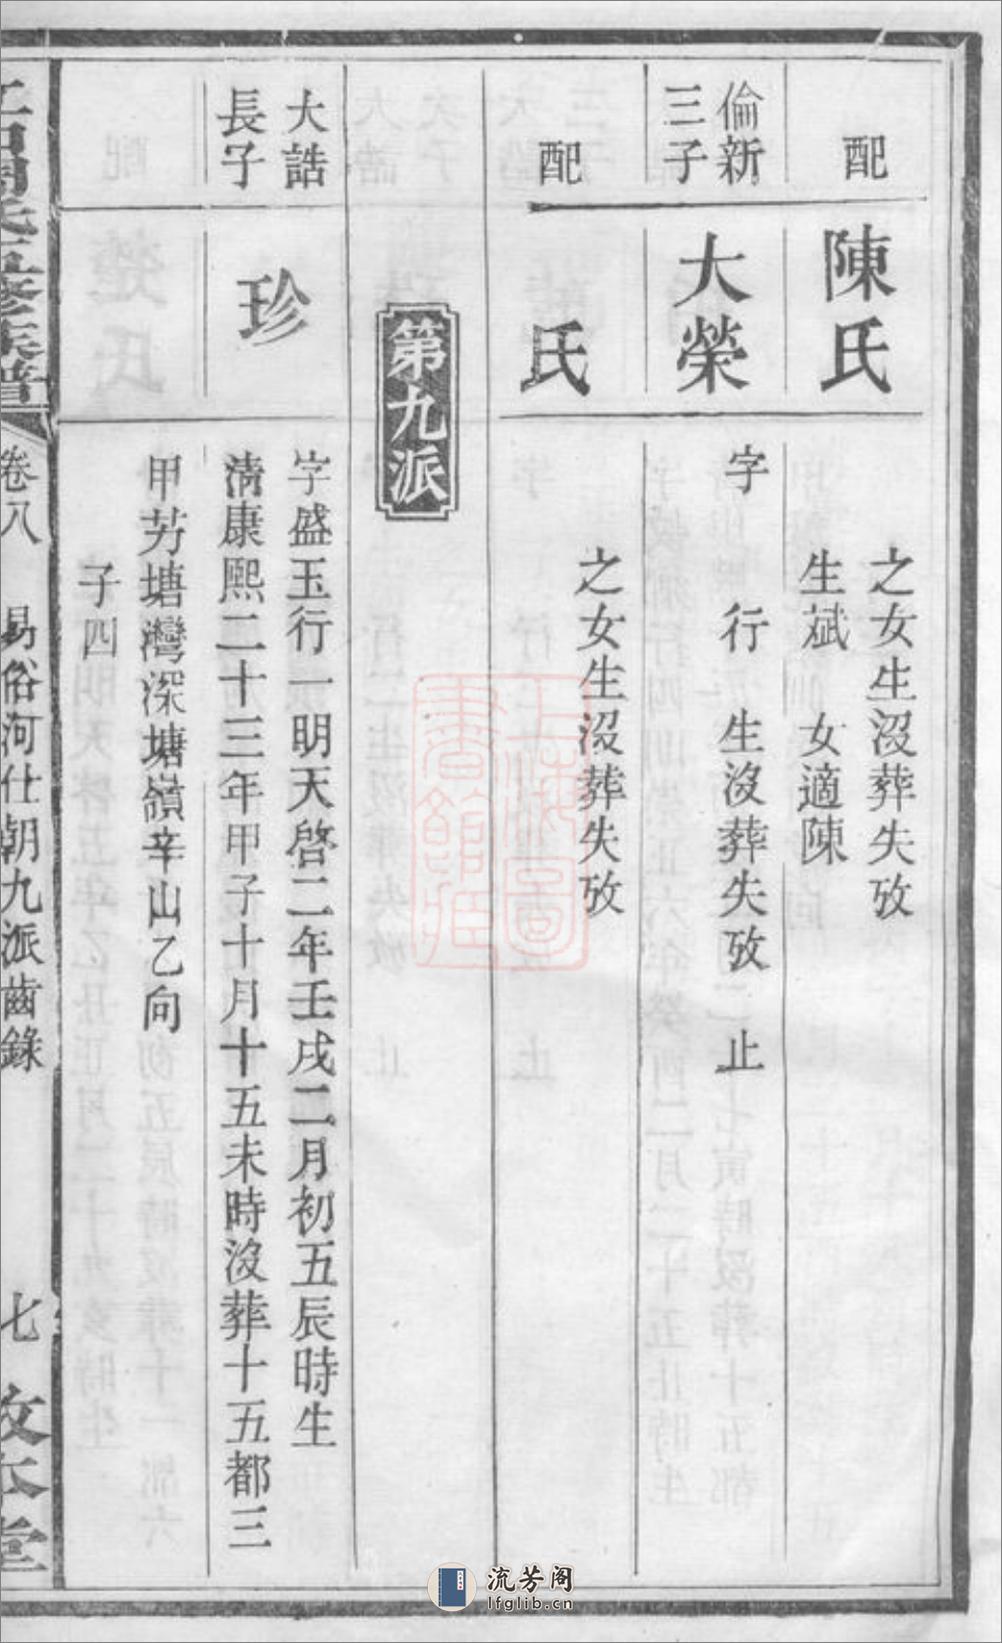 配
陳氏
之女生沒葬失攷
生斌　女適陳
倫新
三子
大榮
字　行　生沒葬失攷　止
配
氏
之女生沒葬失攷
第九派
大誥
長子
珍
字盛玉行一明天啓二年壬戌二月初五辰時生
淸康熙二十三年甲子十月十五未時沒葬十五都三
甲艻塘灣深塘嶺辛山乙向
子四
卷八　易俗河仕朝九派齒錄
七
上海圖書館藏
流芳阁
lfglib.cn